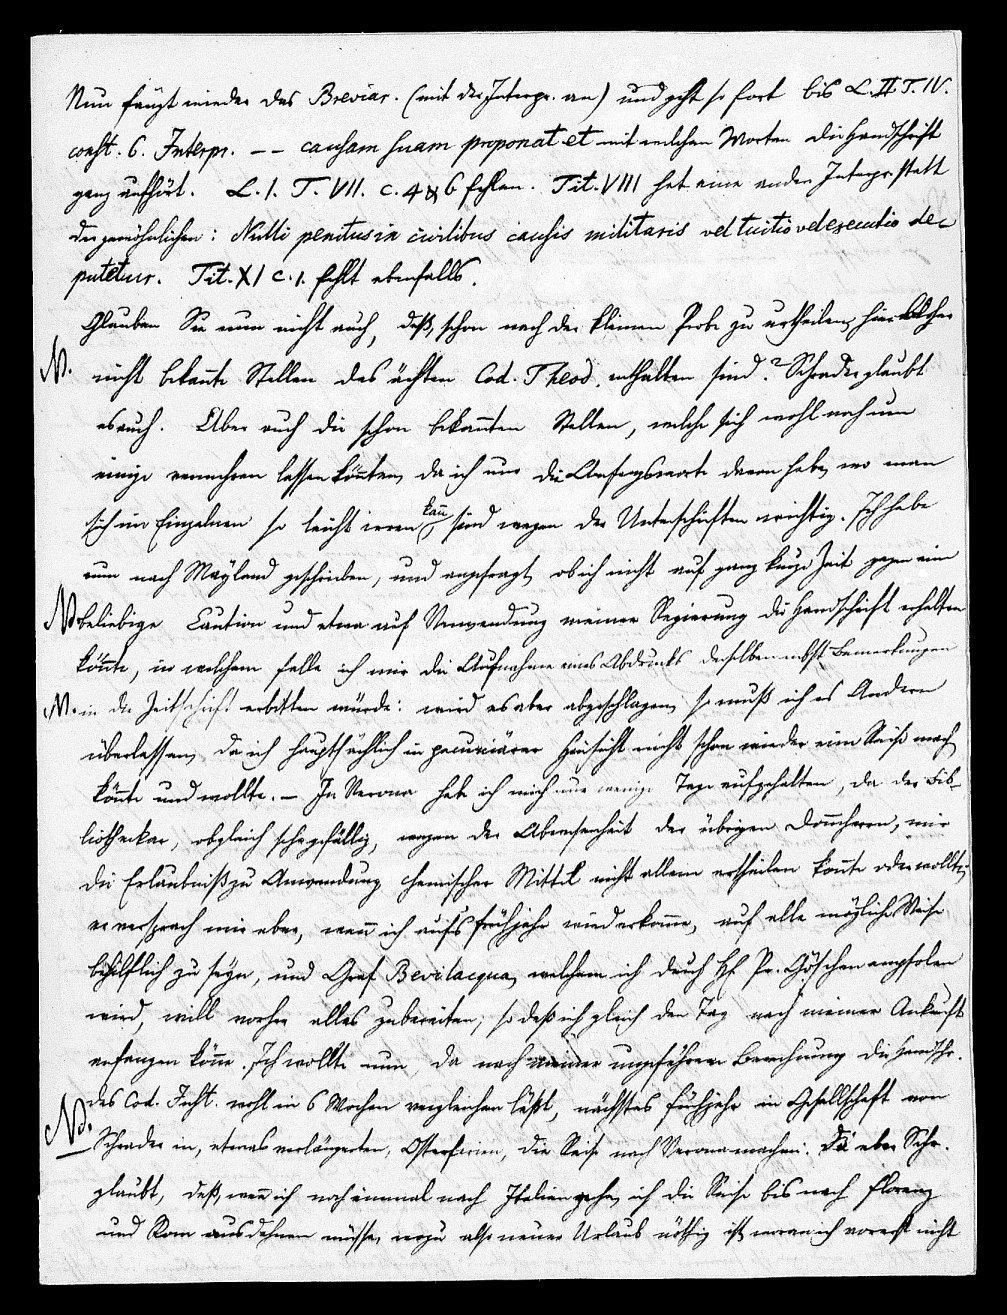 Nun fängt wieder das Breviar. (mit der Interpr. an) und geht so fort bis L. II T. IV.
const. 6. Interpr. –– causam suam proponat et mit welchen Worten die Handschrift
ganz aufhört. L. I. T. VII. c. 4 & 6 fehlen. Tit. VIII hat eine andere Interpr. statt
der gewöhnlichen: Nulli penitus in civilibus causis militaris vel tuitio vel executio de-
putetur. Tit. XI c. 1. fehlt ebenfalls.
Glauben Sie nun nicht auch, daß, schon nach der kleinen Probe zu urtheilen, hier bisher
N. nicht bekañte Stellen des ächten Cod. Theod. enthalten sind? Schrader glaubt
es auch. Aber auch die schon bekañten Stellen, welche sich wohl noch um
einige vermehren lassen köñten, da ich nur die Anfangsworte davon habe, wo man
sich im Einzelnen so leicht irren kañ, sind wegen der Unterschriften wichtig. Ich habe
nun nach Mayland geschrieben, und angefragt, ob ich nicht auf ganz kurze Zeit gegen eine
N. beliebige Caution und etwa auf Verwendung meiner Regierung die Handschrift erhalten
köñte, in welchem Falle ich mir die Aufnahme eines Abdrucks derselben nebst Bemerkungen
N. in der Zeitschrift erbitten würde: wird es aber abgeschlagen, so muß ich es Andern
überlassen, da ich hauptsächlich in pecuniärer Hinsicht nicht schon wieder eine Reise nach
köñte und wollte. – In Verona habe ich mich nur wenige Tage aufgehalten, da der Bib-
liothekar, obgleich sehr gefällig, wegen der Abwesenheit der übrigen Domherren, mir
die Erlaubniß zu Anwendung chemischer Mittel nicht allein ertheilen koñte oder wollte;
er versprach mir aber, weñ ich aufs Frühjahr wiederkomme, auf alle mögliche Weise
behilflich zu seyn, und Graf Bevilacqua, welchem ich durch H. Pr. Göschen empfolen
wird, will vorher alles zubereiten, so daß ich gleich den Tag nach meiner Ankunft
anfangen köñe. Ich wollte nun, da nach meiner ungefähren Berechnung die Handschr.
des Cod. Just. wohl in 6 Wochen vergleichen läßt, nächstes Frühjahr in Gesellschaft von
N. Schrader in, etwas verlängerten, Osterferien, die Reise nach Verona machen. Da aber Schr.
glaubt, daß, weñ ich noch einmal nach Italien gehe, ich die Reise bis nach Florenz
und Rom ausdehnen müsse, wozu also neuer Urlaub nöthig ist, woran ich vorerst nicht